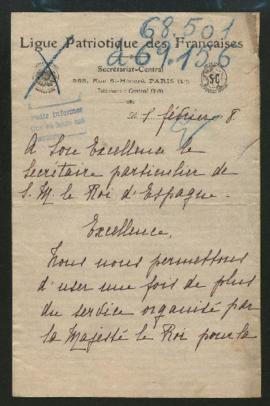 68.501
Ligue Patriotique des Françaises
a 69.156
Secrétariat-Central
368, Rue St-Honoré PARIS (1er)
Téléphone : Central
le 5 février 8
A Son Excellence le
Secrétaire particulier de
S. M. le Roi d'Espagne.
Excellence,
Nous nous permettons
d'user une fois de plus
du service organisé par
sa Majesté le Roi pour la